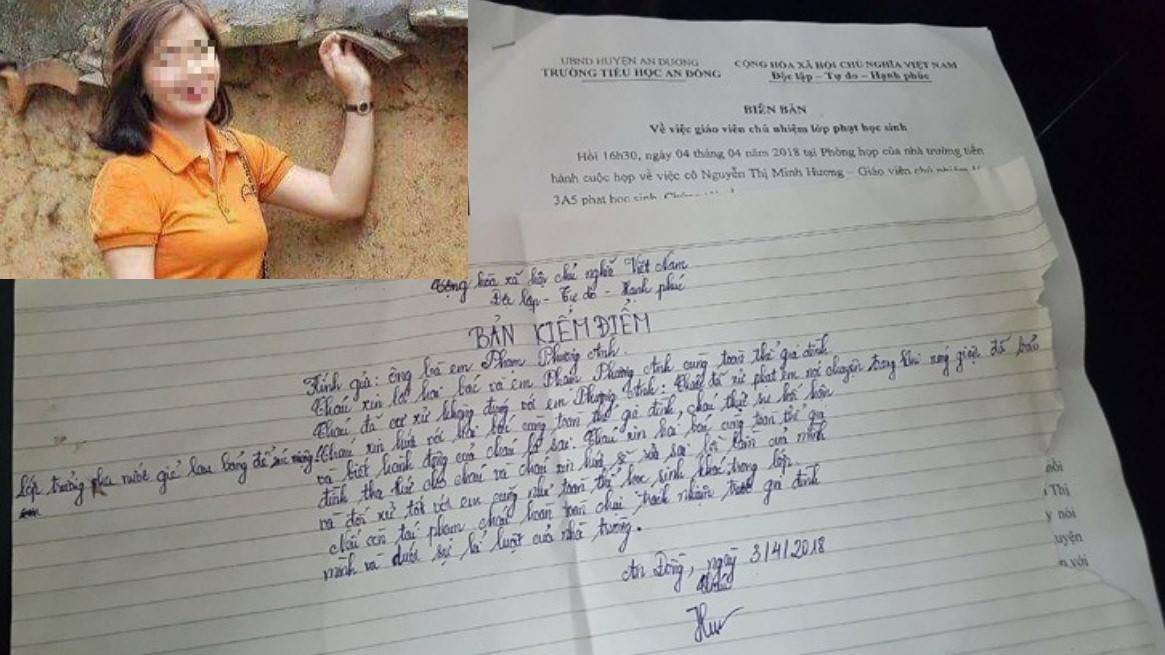 UBND HUYỆN AN DƯƠNG
TRƯỜNG TIỂU HỌC AN ĐỒNG
CỘNG HÒA XÃ HỘI CHỦ NGHĨA VIỆT NAM
Độc lập – Tự do – Hạnh phúc
BIÊN BẢN
Về việc giáo viên chủ nhiệm lớp phạt học sinh
Hồi 16h30, ngày 04 tháng 04 năm 2018 tại Phòng họp của nhà trường tiến
hành cuộc họp về việc cô Nguyễn Thị Minh Hương – Giáo viên chủ nhiệm
3A5 phạt học sinh.
Cộng hòa xã hội chủ nghĩa Việt Nam
Độc lập - Tự do - Hạnh phúc
BẢN KIỂM ĐIỂM
Kính gửi: ông bà em Phạm Phương Anh.
Cháu xin lỗi hai bác và em Phạm Phương Anh cùng toàn thể gia đình
Cháu đã cư xử không đúng với em Phương Anh: Cháu đã xử phạt em nói chuyện trong khi nóng giận đã bảo
lớp trưởng pha nước giẻ lau bảng để súc miệng. Cháu xin hứa với hai bác cùng toàn thể gia đình, cháu thật sự hối hận
và biết hành động của cháu là sai. Cháu xin hai bác cùng toàn thể gia
đình tha thứ cho cháu và cháu xin hứa sẽ sửa sai lỗi lầm của mình
và đối xử tốt với em cũng như toàn thể học sinh khác trong lớp.
Nếu còn tái phạm cháu hoàn toàn chịu trách nhiệm trước gia đình
mình và dưới sự kỉ luật của nhà trường.
An Đồng, ngày 3/4/2018
Cháu
Thị
nói